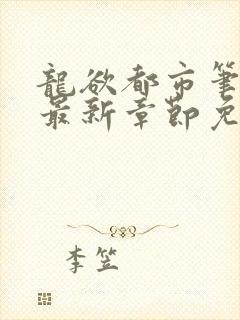 龍欲都市筆
最新章節免
李笠